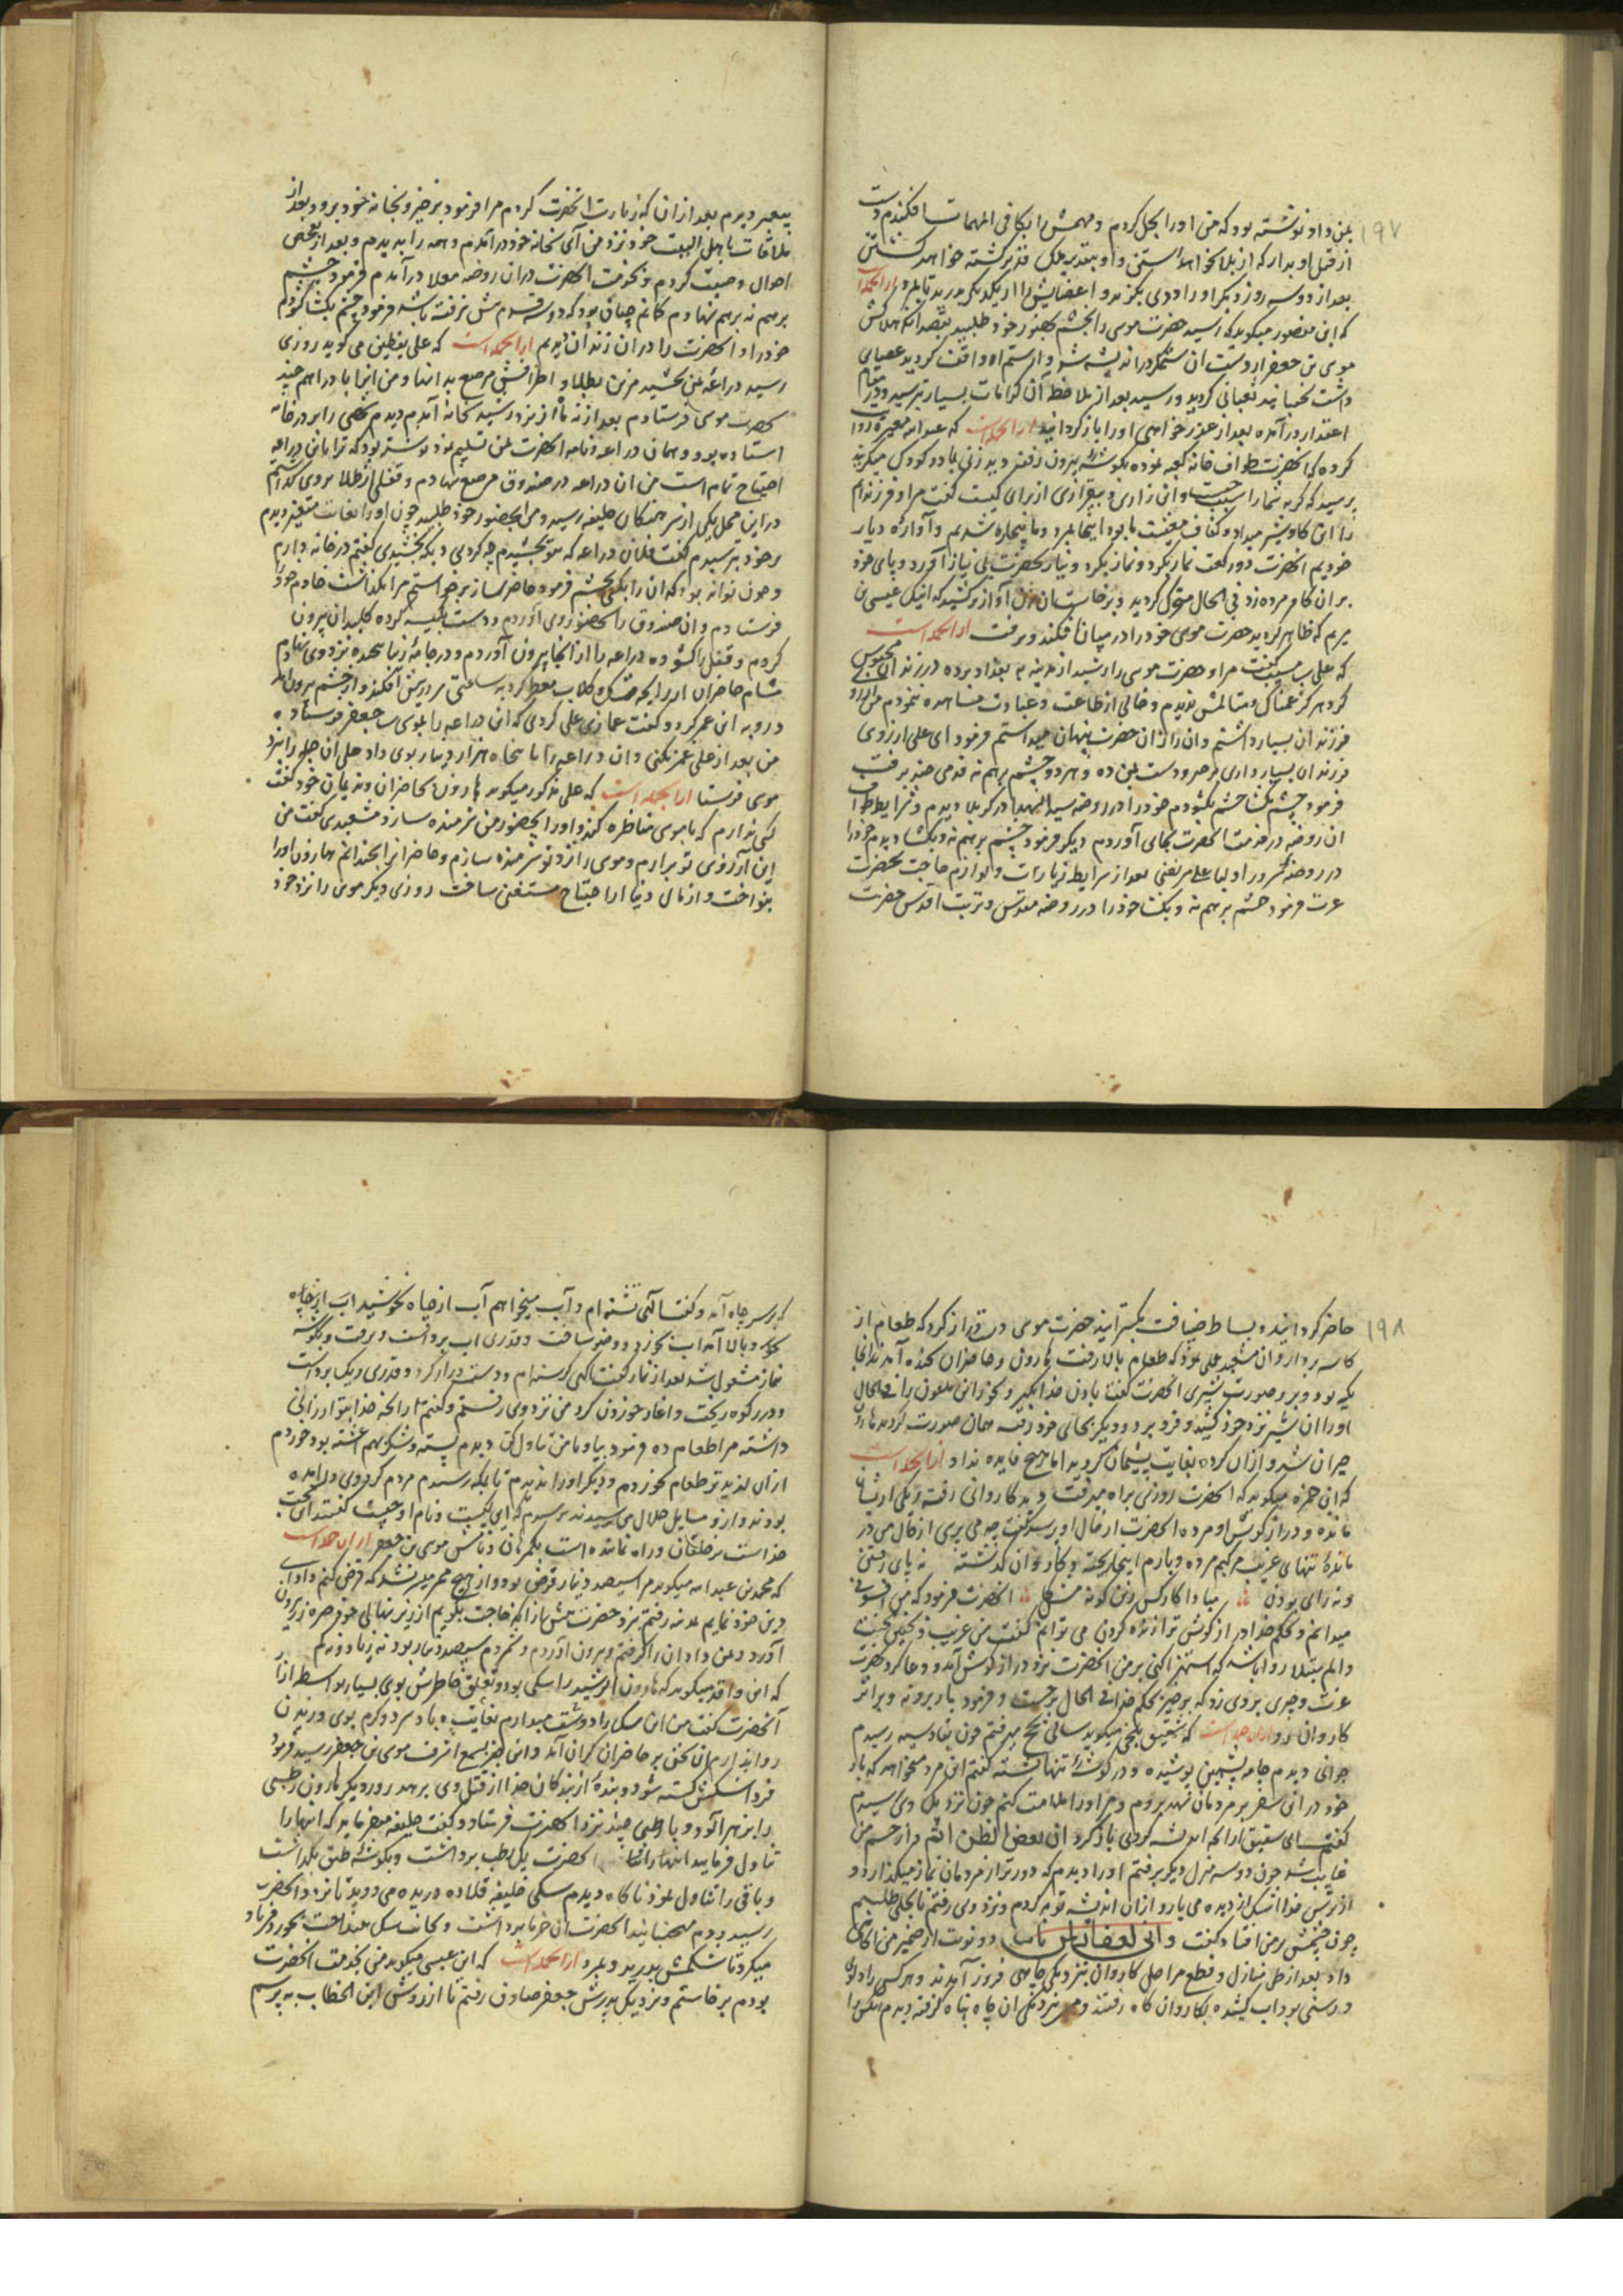 ۱۹۷
بمن داد نوشته بود که من او را بحل کردم و مهمش را بکافی المهمات افکندم دست
از قتل او بدار که از بلا نخواهد رستن و او بتقدیر ملک قدیر کشته خواهد گشتن
بعد از دو سه روز دیگر او را ددی بگزید و اعضایش را از یکدیگر بدرید تا بمرد از انجمله است
که ابن منصور میگوید که رشید حضرت موسی را بخشم بحضور خود طلبید بقصد آنکه هلاکش
موسی بن جعفر از دست آن ستمگر در اندیشه شد و از ستم او واقف گردید عصایی
داشت بجنبانید ثعبانی گردید و رشید بعد از ملاحظه آن کرامات بسیار بترسید و در مقام
اعتذار در آمده بعد از عذر خواهی او را باز گردانید از انجمله است که عبد الله مغیره روایت
کرده که انحضرت طواف خانه کعبه نموده بگوشه بیرون رفتند دید زنی با دو کودک میگریند
پرسید که گریه شما را سبب چیست و این زاری و بیقراری از برای کیست گفت مرا و فرزندانم
را این گاو شیر میداد و کفاف معیشت ما بود اینجا بمرد و ما بیچاره شدیم و آواره دیار
خودیم انحضرت دو رکعت نماز بکرد و نیاز بحضرت بی نیاز آورد و پای خود
بر آن گاو مرده زد فی الحال متحرک گردید و برخاست آن زن آواز برکشید که اینک عیسی بن
مریم که ظاهر گردید حضرت موسی خود را در میان افکند و برفت از انجمله است
که علی مسیب گفت مرا و حضرت موسی را رشید از مدینه به بغداد برده در زندان محبوس
کرد هرگز غمناک و متالمش ندیدم و خالی از طاعت و عبادت مشاهده ننمودم من آرزوی
فرزندان بسیار داشتم و آن راز از آن حضرت پنهان میداشتم فرمود ای علی آرزوی
فرزندان بسیار داری برخیز و دست بمن ده و هر دو چشم برهم نه قدمی چند برفت
فرمود چشم بگشا چشم بگشودم خود را در روضه سید الشهدا در کربلا دیدم و شرایط طواف
آن روضه در خدمت انحضرت بجای آوردم دیگر فرمود چشم برهم نه و بگشا دیدم خود را
در روضه سرور اولیا علی مرتضی بعد از شرایط زیارات و لوازم حاجت بحضرت
عزت فرمود چشم برهم نه و بگشا خود را در روضه مقدس و تربت اقدس حضرت
پیغمبر دیدم بعد از آن که زیارت انحضرت کردم مرا فرمود برخیز و بخانه خود برو و بعد از
ملاقات باهل البیت خود نزد من آی بخانه خود در آمدم و همه را بدیدم و بعد از تفحص
احوال وصیت کردم و بخدمت انحضرت در آن روضه معلا در آمدم فرمود چشم
برهم نه برهم نهادم گمانم چنان بود که دو سه قدم بیش نرفته باشد فرمود چشم بگشا گشودم
خود را و انحضرت را در آن زندان دیدم از انجمله است که علی یقطین می گوید روزی
رشید دراعه بمن بخشید مزین بطلا و اطرافش مرصع و من آنرا با دراهم چند
بحضرت موسی فرستادم بعد از نه ماه از نزد رشید بخانه آمدم دیدم شخصی را بر در خانه
استاده بود و همان دراعه و نامه انحضرت بمن تسلیم نمود نوشته بود که ترا باین دراعه
احتیاج تمام است من آن دراعه در صندوق مرصع نهادم و قفلی از طلا بر وی گذاشتم
در این محل یکی از سرهنگان خلیفه رسید و مرا بحضور خود طلبید چون او را بغایت متغیر دیدم
بر خود بترسیدم گفت فلان دراعه که بتو بخشیدم چه کردی و بکه بخشیدی گفتم در خانه دارم
و چون تواند بود که آن را بکسی بخشم فرمود حاضر ساز برخواستم مرا بگذاشت خادم خود
فرستادم و آن صندوق را بحضور وی آوردم و دست بکیسه کرده کلید آن بیرون
کردم و قفل را گشوده دراعه را از آنجا بیرون آوردم و در جامه زیبا پیچیده نزد وی نهادم
مشام حاضران از رایحه مشک و گلاب معطر گردید ساعتی سر در پیش افکند و از خشم بیرون آمد
و رو به ابن عمر کرد و گفت غمازی علی کردی که این دراعه را بموسی بن جعفر فرستاده
من بعد از علی غمز نکنی و آن دراعه را با پنجاه هزار دینار بوی داد علی آن جمله را بنزد
موسی فرستاد از انجمله است که علی مذکور میگوید هارون بحاضران و ندیمان خود گفت
کسی ندارم که با موسی مناظره کند و او را بحضور من شرمنده سازد مشعبدی گفت من
این آرزوی تو برارم و موسی را نزد تو شرمنده سازم و حاضرانرا بخندانم هارون او را
بنواخت و از مال دنیا از احتیاج مستغنی ساخت روزی دیگر موسی را نزد خود
۱۹۸
حاضر گردانید و بساط ضیافت بگسترانید حضرت موسی دست دراز کرد که طعام از
کاسه بردارد آن مشعبد عملی نمود که طعام بالا رفت هارون و حاضران بخنده آمدند انجا
تکیه بود و بر او صورت شیری انحضرت گفت باذن خدا بگیر و بخور این ملعون را فی الحال
او را آن شیر نزد خود کشید و فرو برد و دیگر بجای خود رفته همان صورت گردید هارون
حیران شد و از آن کرده بغایت پشیمان گردید اما هیچ فایده نداد از انجمله است
که ابی حمزه میگوید که انحضرت روزی براه میرفت دید کاروانی رفته و یکی از ایشان
مانده و دراز گوش او مرده انحضرت از حال او پرسید گفت چه می پرسی از حال من در
مانده تنهای غریب مرکبم مرده و بارم اینجا ریخته و کاروان گذشته نه پای رفتن
و نه رای بودن مبادا کار کس زین گونه مشکل انحضرت فرمود که من افسونی
میدانم و بحکم خدا دراز گوش ترا زنده کردن می توانم گفت من غریب و بچنین محنت
و الم مبتلا روا باشد که استهزا کنی بر من انحضرت نزد دراز گوش آمد و دعا کرد بحضرت
عزت و چیزی بر وی زد که برخیز بحکم خدا فی الحال برجست و فرمود بار بر او نه و بر اثر
کاروان رو از انجمله است که شقیق بلخی میگوید سالی بحج میرفتم چون بقادسیه رسیدم
جوانی دیدم جامه پشمین پوشیده و در گوشه تنها نشسته گفتم این مرد میخواهد که بار
خود در این سفر بر مردمان نهد بروم و مر او را ملامت کنم چون نزدیک وی رسیدم
گفت ای شقیق از انچه اندیشه کردی باز گرد ان بعض الظن اثم و از چشم من
غایب شد چون دو سه منزل دیگر برفتم او را دیدم که دورتر از مردمان نماز میگذارد و
از ترس خدا اشک از دیده می بارد از آن اندیشه توبه کردم و نزد وی رفتم تا بحلی طلبم
چون چشمش بر من افتاد گفت وانی لغفار لمن تاب دو نوبت از ضمیر من آگاهی
داد بعد از طی منازل و قطع مراحل کاروان بنزدیکی چاهی فروز آمدند و هر کسی را دلوی
و رسنی بود آب کشیده بکاروان گاه رفتند و من نزدیکی آن چاه پناه گرفته دیدم آنکس را
که بر سر چاه آمد و گفت الهی تشنه ام و آب میخواهم آب از چاه بجوشید آب از چاه
بجوشید و بالا آمد آب بخورد و وضو ساخت و قدری آب برداشت و برفت و بگوشه
نماز مشغول شد بعد از نماز گفت الهی گرسنه ام و دست دراز کرد و قدری ریگ برداشت
و در رکوه ریخت و آغاز خوردن کرد من نزد وی رفتم و گفتم از انچه خدا بتو ارزانی
داشته مرا طعام ده فرمود بیا و با من تناول کن دیدم پسته و شکر بهم آغشته بود خوردم
از آن لذیذتر طعام نخوردم و دیگر او را ندیدم تا بمکه رسیدم مردم گرد وی در آمده
بودند و از او مسایل حلال می پرسیدند پرسیدم که این کیست و نام او چیست گفتند این حجت
خداست بر خلقان و راه نماینده است بگمرهان و نامش موسی بن جعفر از انجمله است
که محمد بن عبد الله میگوید مرا سیصد دینار قرض بود و از هیچ ممر میسر نشد که قرض کنم و ادای
دین خود نمایم بمدینه رفتم نزد حضرت پیش از آنکه حاجت بگویم از زیر نهالی خود صره زر بیرون
آورد و بمن داد آن را گرفتم و بیرون آوردم و شمردم سیصد دینار بود نه زیاد و نه کم
که ابن واقد میگوید که هارون الرشید را سگی بود و تعلق خاطرش بوی بسیار بواسطه آزار
آنحضرت گفت من این سگ را دوست میدارم بغایت و باد سرد و گرم بوی وزیدن
روا ندارم این سخن بر حاضران گران آمد و این خبر بسمع اشرف موسی بن جعفر رسید فرمود
فردا سگش کشته شود و بنده از بندگان خدا از قتل وی برهد روز دیگر هارون رطبی
را بزهر آلود و با رطبی چند نزد انحضرت فرستاد و گفت خلیفه میفرماید که اینها را
تناول فرمایید انحضرت یک رطب برداشت و بگوشه طبق بگذاشت
و باقی را تناول نمود ناگاه دیدم سگی خلیفه قلاده دریده می دوید تا نزد انحضرت
رسید و دم میجنبانید انحضرت آن خرما برداشت و بجانب سگ بینداخت بخورد و فریاد
میکرد تا شکمش بدرید و بمرد از انجمله است که ابن عیسی میگوید من بخدمت انحضرت
بودم برخاستم و نزدیک پدرش جعفر صادق رفتم تا از روش ابن الخطاب به پرسم